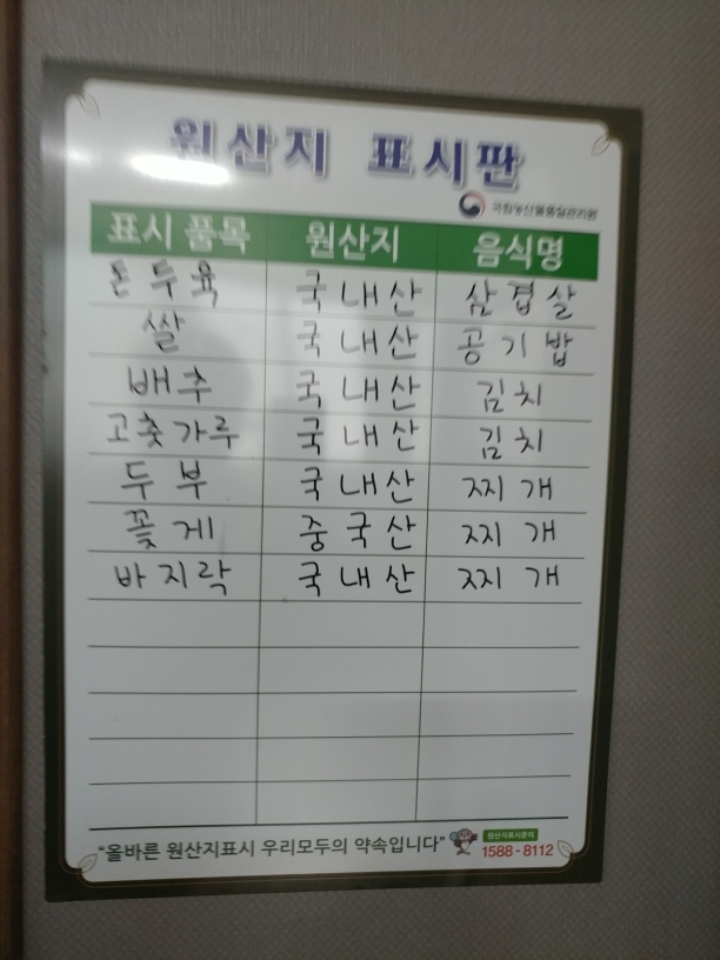 원산지 표시판
국립농산물품질관리원
표시 품목 원산지 음식명
돈두육 국내산 삼겹살
쌀 국내산 공기밥
배추 국내산 김치
고춧가루 국내산 김치
두부 국내산 찌개
꽃게 중국산 찌개
바지락 국내산 찌개
"올바른 원산지표시 우리모두의 약속입니다"
원산지표시문의
1588-8112